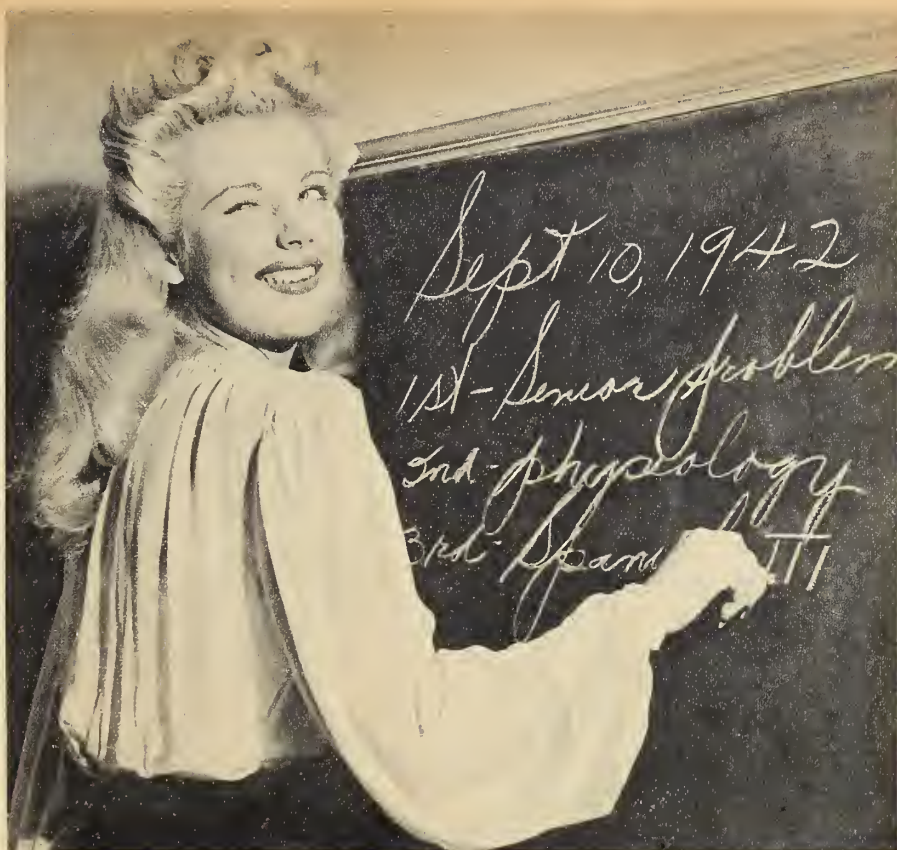 Sept 10, 1942
1st - Senior problem
2nd - physiology
3rd - Span III